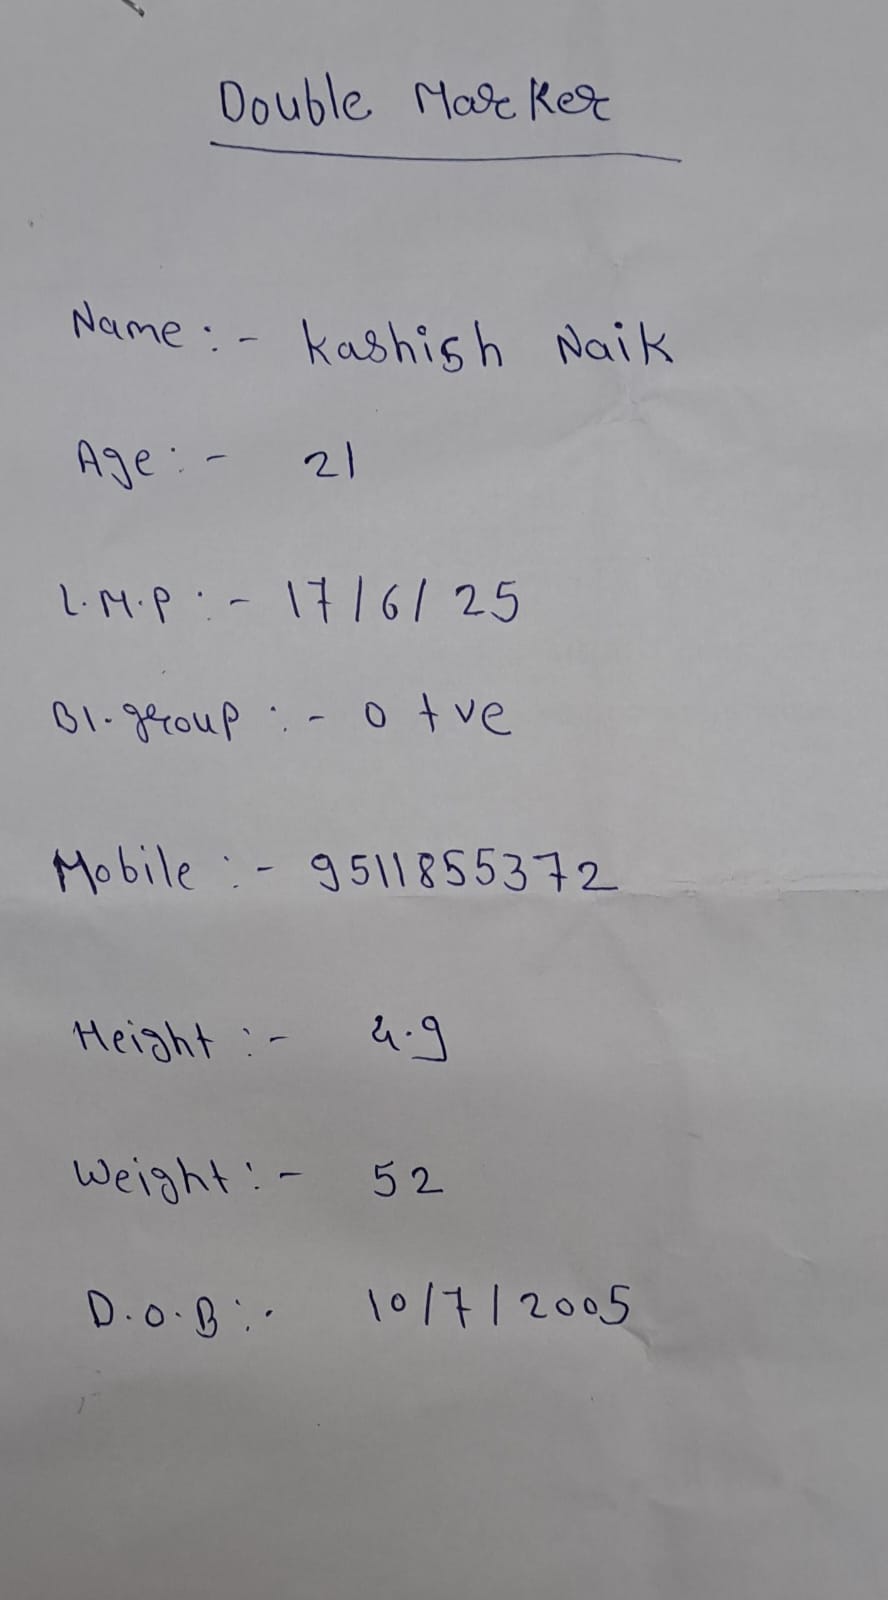 Double Marker
Name :- Kashish Naik
Age :- 21
L.M.P :- 17/6/25
Bl. group :- O +ve
Mobile :- 9511855372
Height :- 4.9
Weight :- 52
D.O.B :- 10/7/2005